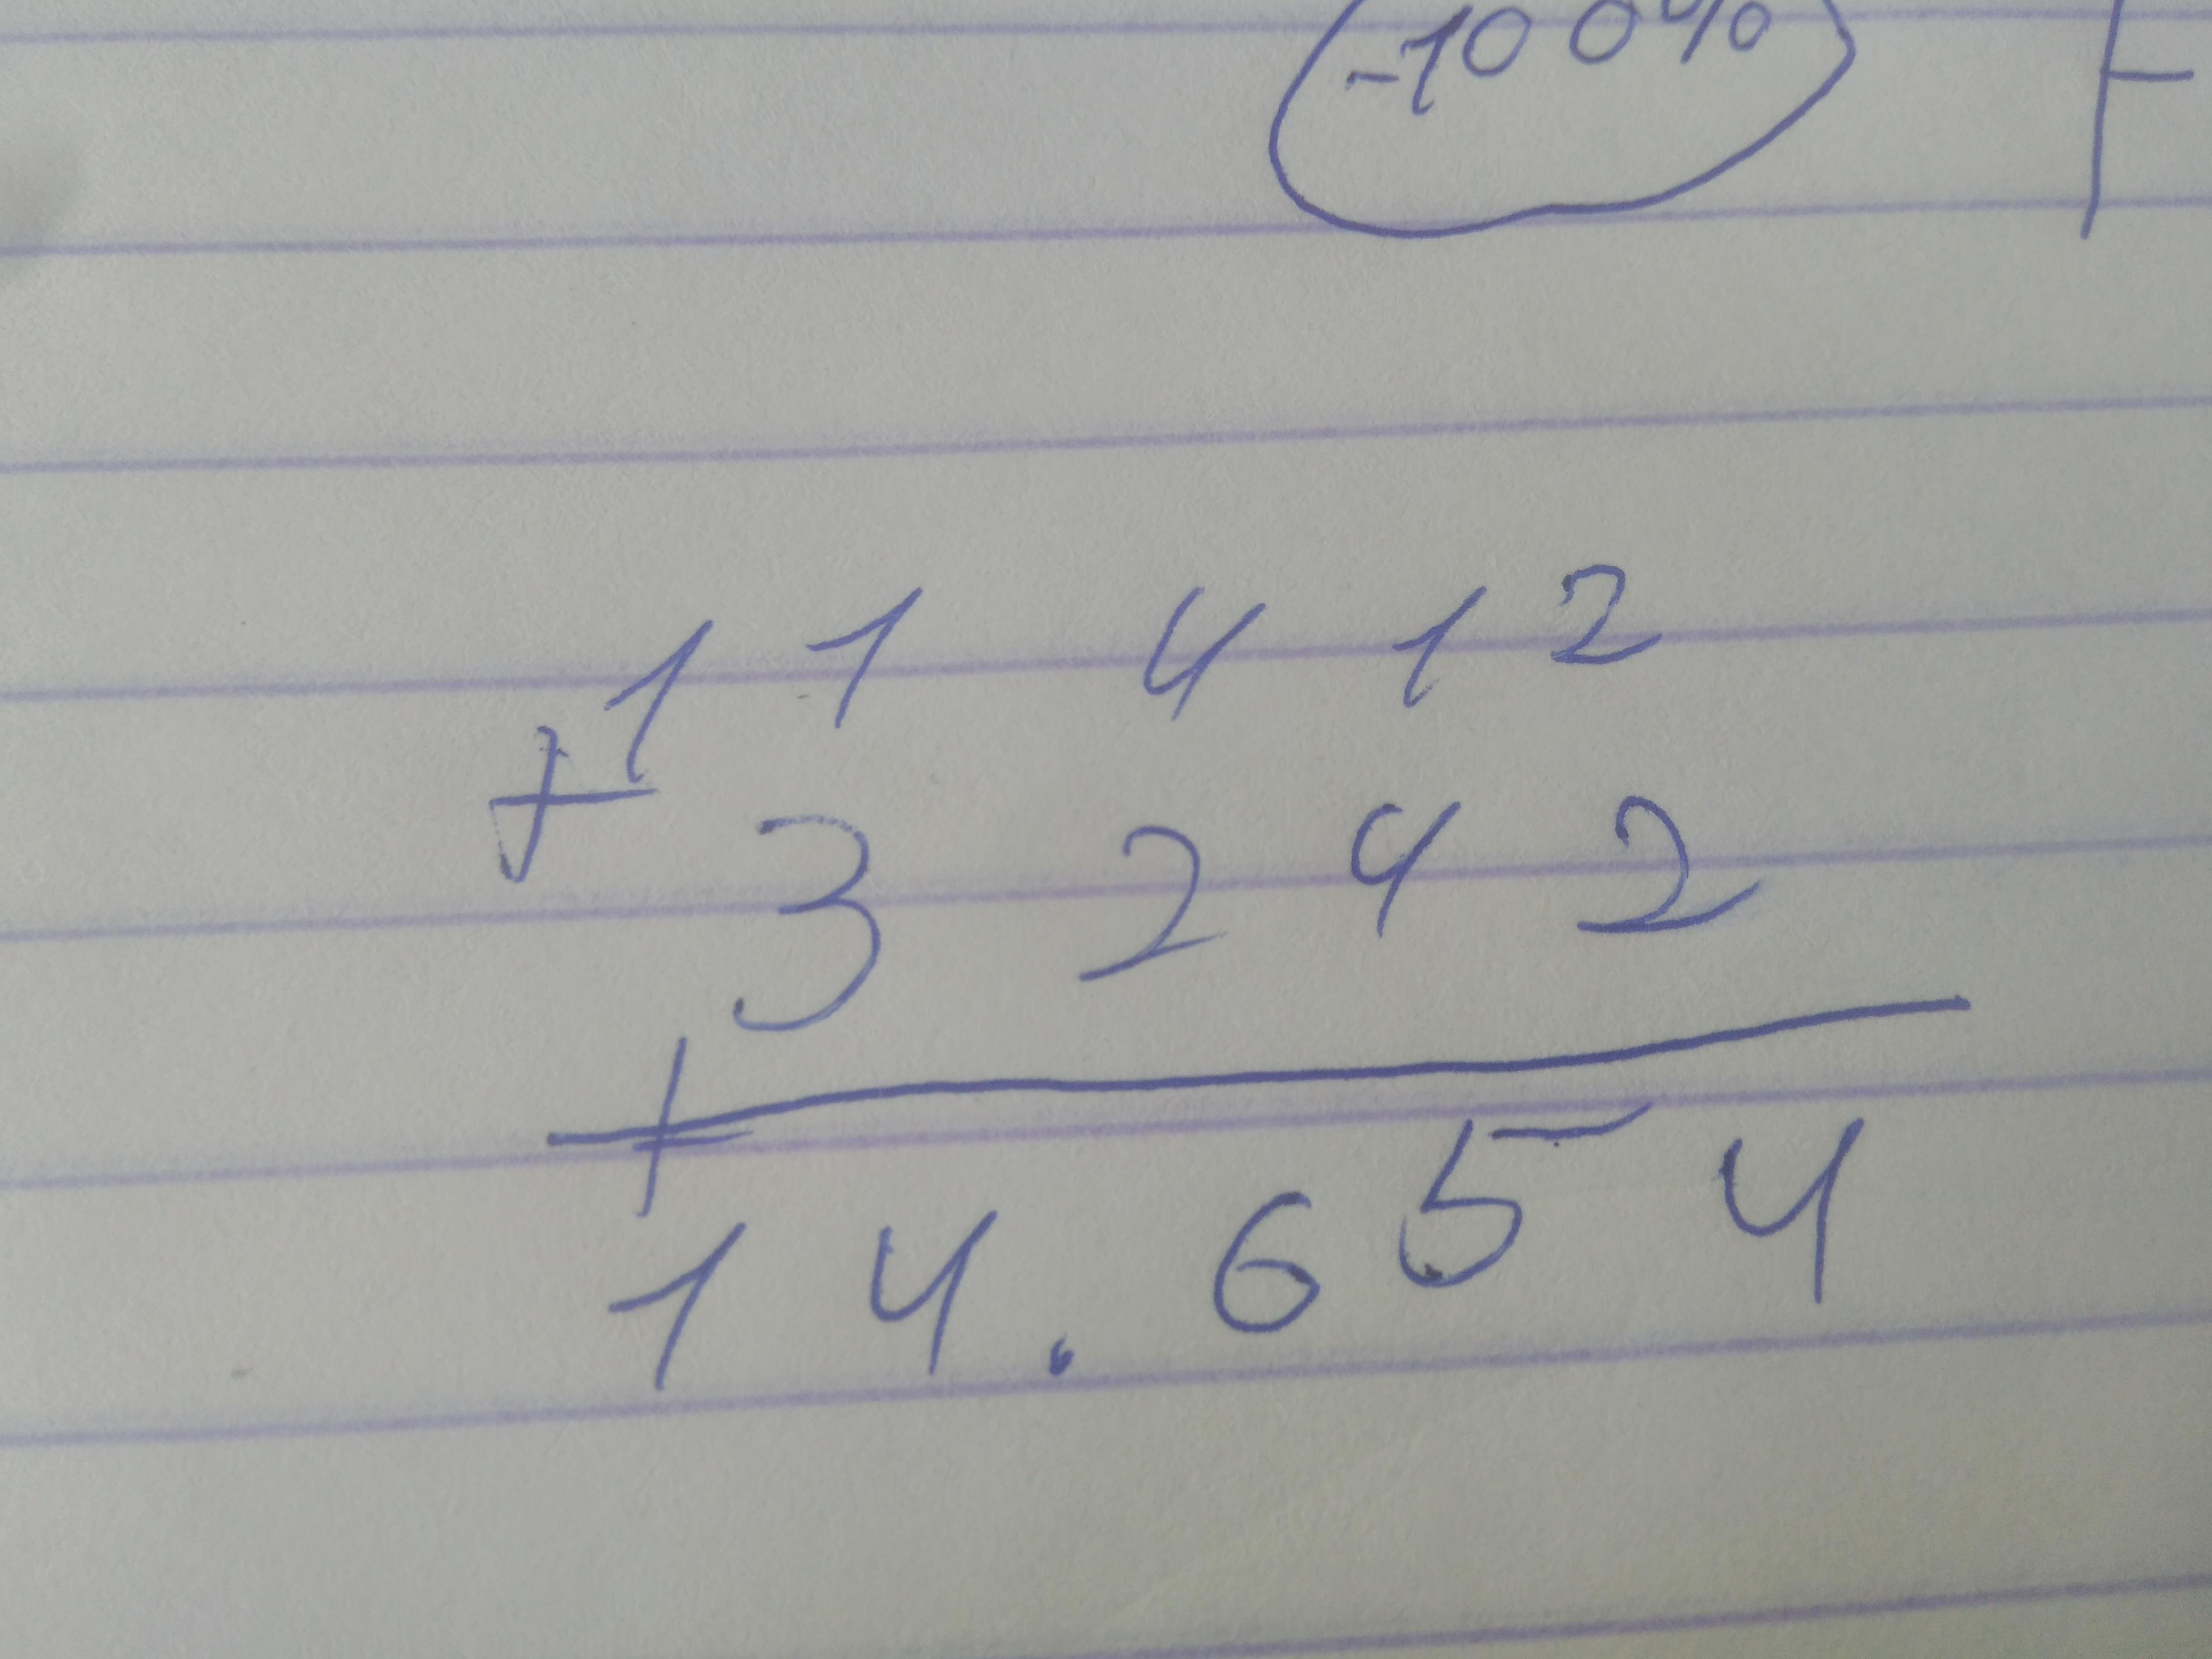 -100%
11 412
+
3242
+
14.654